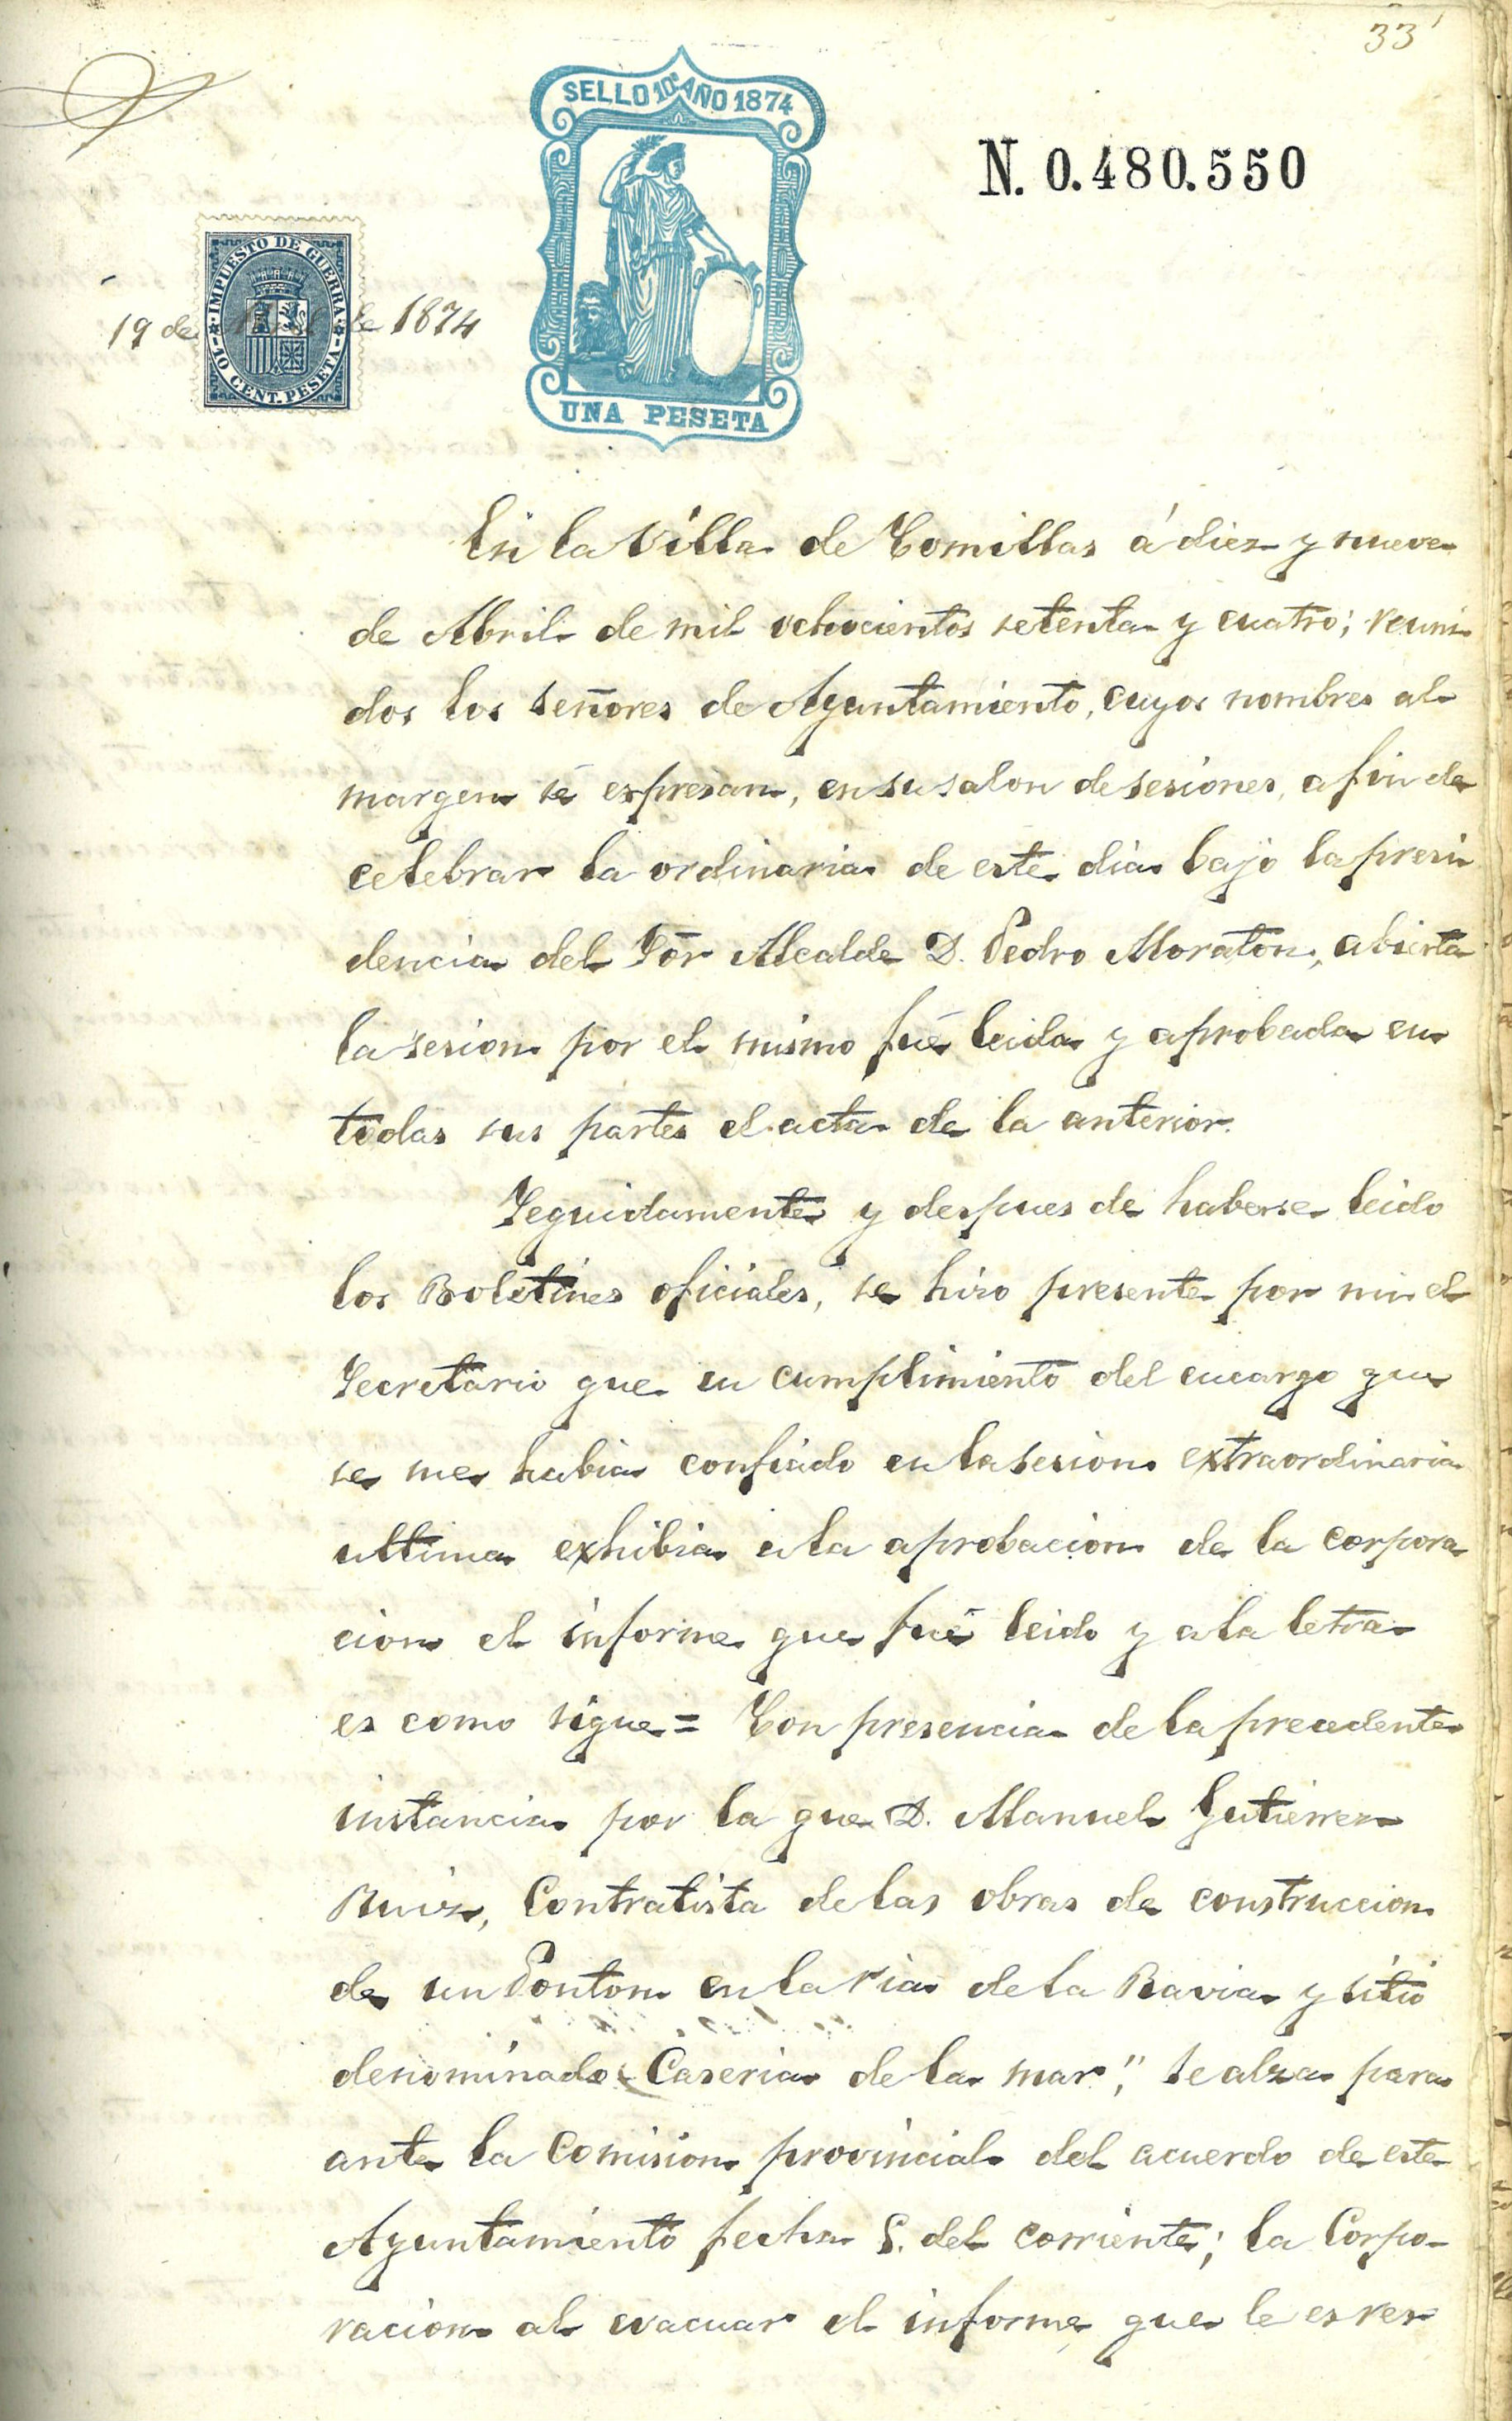 33
SELLO 10º AÑO 1874
N. 0.480.550
IMPUESTO DE GUERRA
10 CENT. PESETA
19 de Abril de 1874
UNA PESETA
En la Villa de Comillas á diez y nueve
de Abril de mil ochocientos setenta y cuatro; reuni
dos los señores de Ayuntamiento, cuyos nombres al
margen se espresan, en su salon de sesiones, a fin de
celebrar la ordinaria de este dia bajo la presi
dencia del Sor Alcalde D. Pedro Moraton, abierta
la sesion por el mismo fué leida y aprobada en
todas sus partes el acta de la anterior.
Seguidamente y despues de haberse leido
los Boletines oficiales, se hizo presente por mi el
Secretario que en cumplimiento del encargo que
se me habia confiado en la sesion extraordinaria
ultima exhibia a la aprobacion de la corpora
cion el informe que fué leido y a la letra
es como sigue = Con presencia de la precedente
instancia por la que D. Manuel Gutierrez
Ruiz, Contratista de las obras de construccion
de un Ponton en la ria de la Ravia y sitio
denominado "Caseria de la mar", se alza para
ante la Comision provincial del acuerdo de este
Ayuntamiento fecha 5. del corriente; la Corpo-
racion al evacuar el informe que le es res